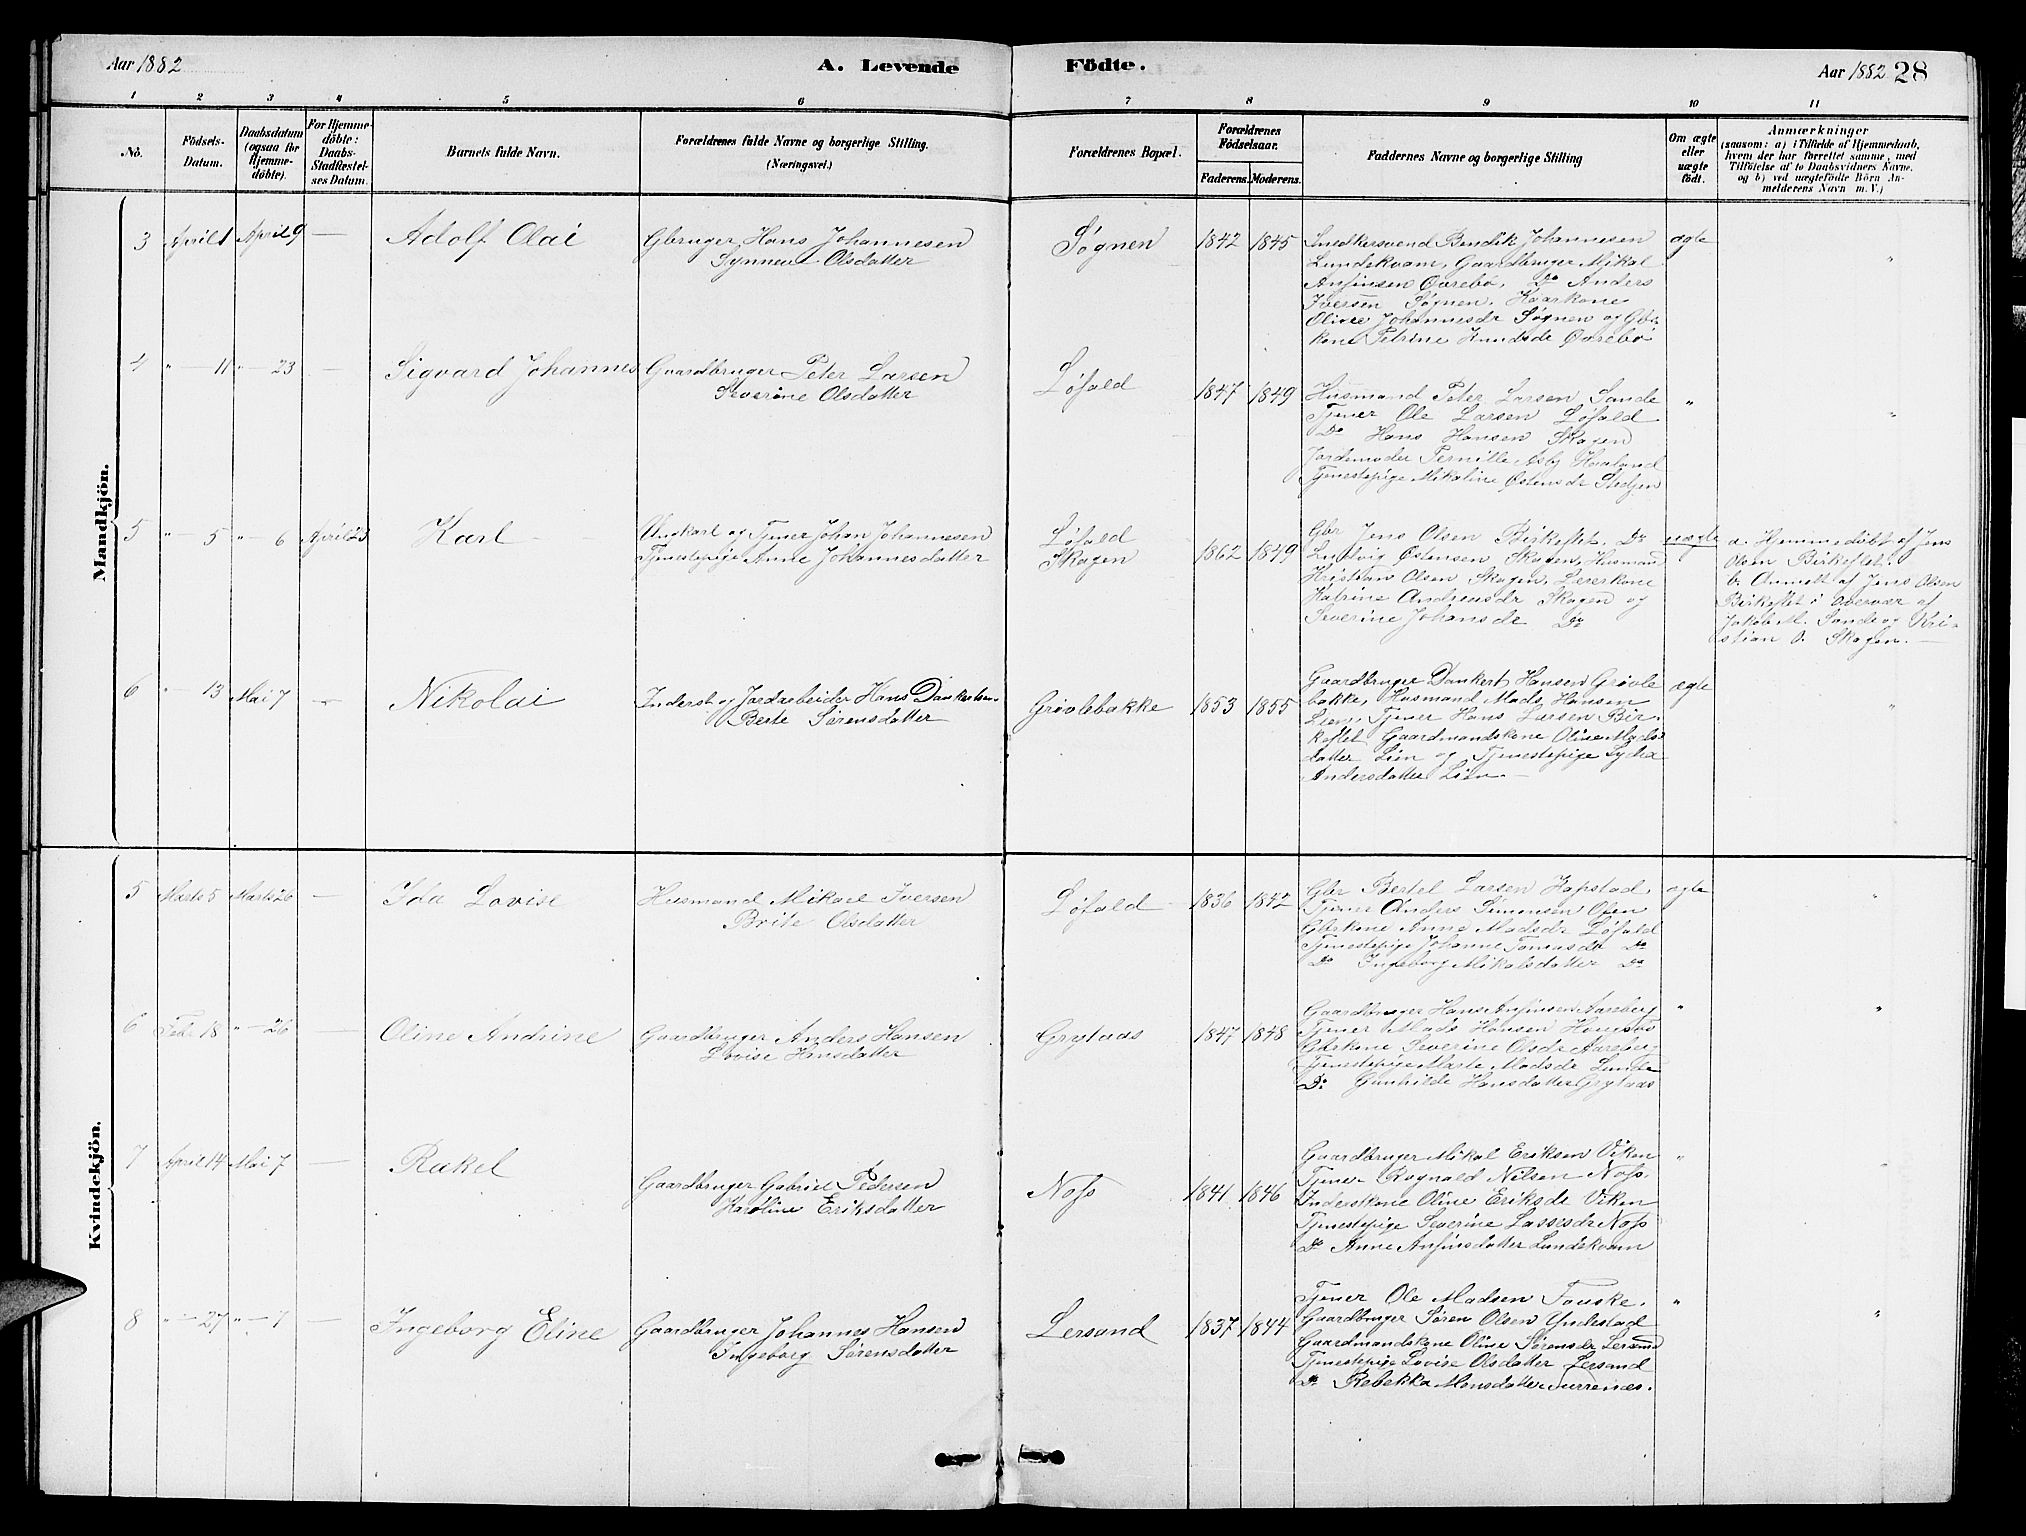 Aar 1882
A. Levende Födte.
Aar 1882 28
1 2 3 4 5 6 7 8 9 10 11
No.
Födsels-Datum.
Daabsdatum (ogsaa for Hjemme-döbte).
For Hjemme-döbte: Daabs-Stadfæstel-ses Datum.
Barnets fulde Navn.
Forældrenes fulde Navne og borgerlige Stilling.
(Næringsvei.)
Forældrenes Bopæl.
Forældrenes Födselsaar.
Faderens. Moderens.
Faddernes Navne og borgerlige Stilling
Om ægte eller uægte födt.
Anmærkninger
(saasom: a) i Tilfælde af Hjemmedaab,
hvem der har forrettet samme, med
Tilföielse af to Daabsvidners Navne.
og b) ved uægtefödte Börn An-
melderens Navn m. V.)
Mandkjön.
3 April 1 April 9 — Adolf Olai
Gbruger Hans Johannesen
Synneve Olsdatter
Søgnen 1842 1845
Snedkersvend Bendik Johannesen
Lundekvam, Gaardbruger Mikal
Anfinsen Øvrebø, Do Anders
Iversen Søgnen, Kaarkone
Olivee Johannesdr Søgnen og Gbr-
kone Petrine Knudsdr Øvrebø
ægte "
4 " — 11 " — 23 — Sigvard Johannes
Gaardbruger Peter Larsen
Severine Olsdatter
Løfald 1847 1849
Husmand Peter Larsen Sande
Tjener Ole Larsen Løfald
Do Hans Hansen Skogen
Jordemoder Pernille Asbj Haaland
Tjenestepige Mikaline Østensdr Stedjen
" "
5 " — 5 " — 6 April 23 Karl
Ungkarl og Tjener Johan Johannesen
Tjenestepige Anne Johannesdatter
Løfald
Skogen
1862 1849
Gbr Jens Olsen Birkeflet. Do
Ludvig Østensen Skogen, Husmand
Kristian Olsen Skogen, Leierkone
Katrine Andreasdr Skogen og
Severine Johansdr Do
uægte
a. Hjemmedøbt af Jens
Olsen Birkeflet.
b. Anmeldt af Jens Olsen
Birkeflet i Overvær af
Jakob M. Sande og Kri-
stian O. Skogen. —
6 " — 13 Mai 7 — Nikolai
Inderst og Jordarbeider Hans Dankertsen
Berte Sørensdatter
Grøvlebakke 1853 1855
Gaardbruger Dankert Hansen Grøvle
bakke, Husmand Mads Hansen
Lien, Tjener Hans Larsen Bir-
keflet Gaardmandskone Oline Mads-
datter Lien og Tjenestepige Lydia
Andersdatter Lien. —
ægte "
Kvindekjön.
5 Marts 5 Marts 26 — Ida Lovise
Husmand Mikael Iversen
Brite Olsdatter
Løfald 1836 1842
Gbr Bertel Larsen Hapstad,
Tjener Anders Simonsen Osen
Gbrkone Anne Madsdr Løfald
Tjenestepige Johanne Tomasdr Do
Do Ingeborg Mikalsdatter Do
ægte "
6 Febr 18 " — 26 — Oline Andrine
Gaardbruger Anders Hansen
Lovise Hansdatter
Grytaas 1847 1848
Gaardbruger Hans Anfinsen Aareberg
Tjener Mads Hansen
Gbrkone Severine Olsdr Aareberg
Tjenestepige Marte Madsdr Lunde
Do Gunhilde Hansdatter Grytaas
" "
7 April 14 Mai 7 — Rakel
Gaardbruger Gabriel Pedersen
Karoline Eriksdatter
Nofs 1841 1846
Gaardbruger Mikal Eriksen Viken
Tjener Rognald Nilsen Nofs.
Inderskone Oline Eriksdr Viken
Tjenestepige Severine Lassesdr Nofs
Do Anne Anfinsdatter Lundekvam
" "
8 " — 27 " — 7 — Ingeborg Eline
Gaardbruger Johannes Hansen
Ingeborg Sørensdatter
Lersand 1837 1844
Tjener Ole Madsen Fauske.
Gaardbruger Søren Olsen Yndestad
Gaardmandskone Oline Sørensdr Lersund
Tjenestepige Lovise Olsdatter Lersand
Do Rebekka Monsdatter
" "